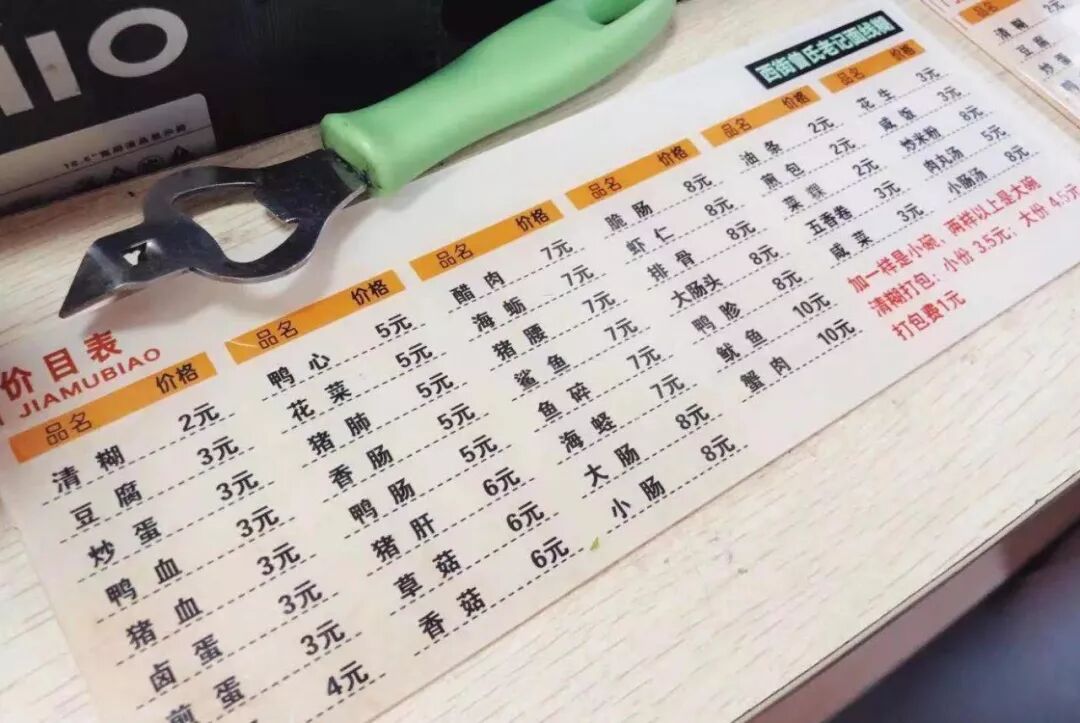 价目表
JIAMUBIAO
品名 价格
清糊 2元
豆腐 3元
炒蛋 3元
鸭血 3元
猪血 3元
卤蛋 3元
煎蛋 3元
4元
品名 价格
鸭心 5元
花菜 5元
猪肺 5元
香肠 5元
鸭肠 5元
猪肝 6元
草菇 6元
香菇 6元
品名 价格
醋肉 7元
海蛎 7元
猪腰 7元
鲨鱼 7元
鱼碎 7元
海蛏 7元
大肠 8元
小肠 8元
品名 价格
脆肠 8元
虾仁 8元
排骨 8元
大肠头 8元
鸭胗 8元
鱿鱼 10元
蟹肉 10元
品名 价格
油条 2元
煎包 2元
菜粿 2元
五香卷 3元
咸菜 3元
西街氏老记面线糊
品名 价格
花生 3元
咸饭 3元
炒米粉 8元
肉丸汤 5元
小肠汤 8元
加一样是小碗，两样以上是大碗
清糊打包：小份 3.5元；大份 4.5元
打包费1元
品名
清糊 2元
豆腐
炒蛋